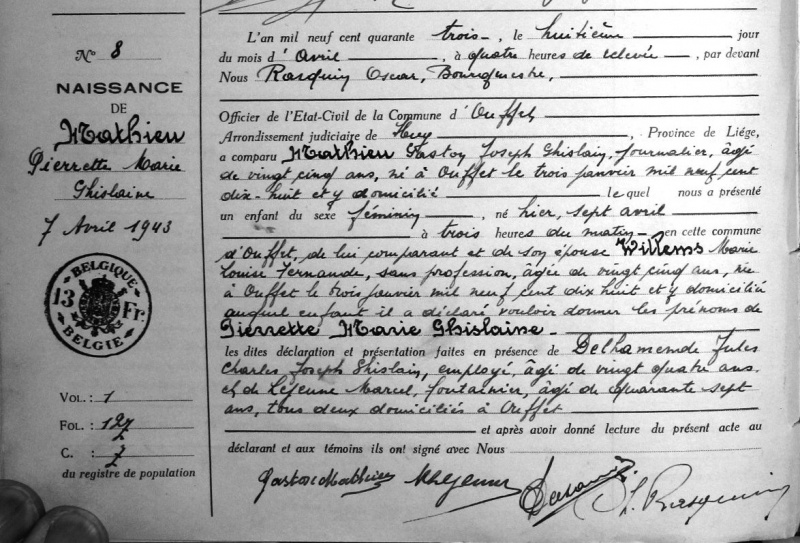 N° 8
NAISSANCE
DE
Mathieu
Pierrette Marie
Ghislaine
7 Avril 1943
BELGIQUE
13 Fr.
BELGIE
VOL. : 1
FOL. : 127
C. 7
du registre de population
L'an mil neuf cent quarante trois, le huitième jour
du mois d'Avril, à quatre heures de relevée, par devant
Nous Rasquin Oscar, Bourgmestre,
Officier de l'Etat-Civil de la Commune d'Ouffet
Arrondissement judiciaire de Huy, Province de Liége,
a comparu Mathieu Gaston Joseph Ghislain, journalier, âgé
de vingt cinq ans, né à Ouffet le trois janvier mil neuf cent
dix-huit et y domicilié lequel nous a présenté
un enfant du sexe féminin, né hier, sept avril
à trois heures du matin - en cette commune
d'Ouffet, de lui comparant et de son épouse Willems Marie
Louise Fernande, sans profession, âgée de vingt cinq ans, née
à Ouffet le trois janvier mil neuf cent dix huit et y domiciliée
auquel enfant il a déclaré vouloir donner les prénoms de
Pierrette Marie Ghislaine -
les dites déclaration et présentation faites en présence de Delhamende Jules
Charles Joseph Ghislain, employé, âgé de vingt quatre ans,
et de Lejeune Marcel, fontainier, âgé de quarante sept
ans, tous deux domiciliés à Ouffet
et après avoir donné lecture du présent acte au
déclarant et aux témoins ils ont signé avec Nous
Gaston Mathieu MLejeune O. Rasquin